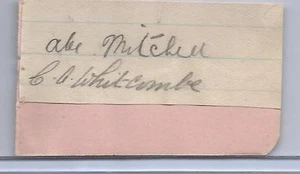 abe Mitchell
C. A. Whitcombe